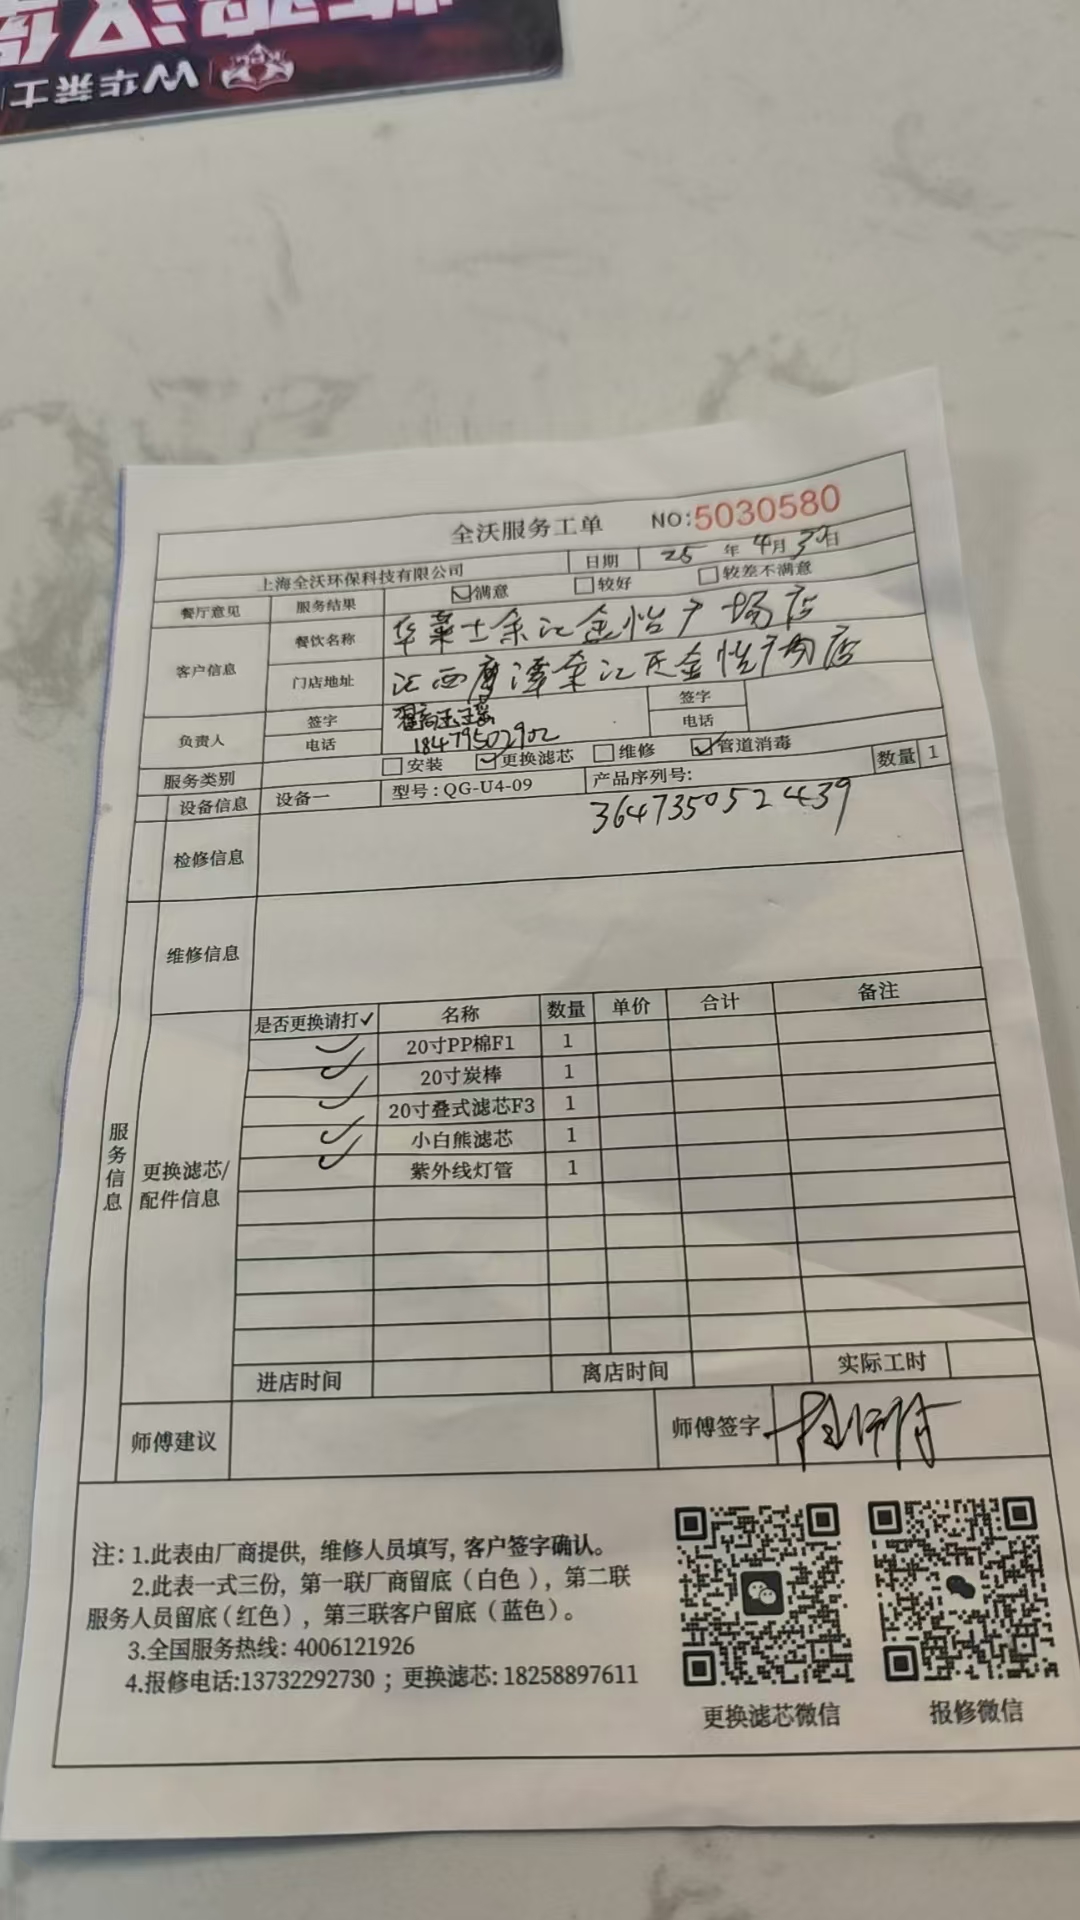 W华莱士
全沃服务工单 NO:5030580
上海全沃环保科技有限公司 日期 25 年 4月 30日
餐厅意见 服务结果 ☑满意 □较好 □较差不满意
客户信息 餐饮名称 华莱士余江金怡广场店
门店地址 江西鹰潭余江区金怡广场店
负责人 签字 签字
电话 18479502902 电话
服务类别 □安装 ☑更换滤芯 □维修 ☑管道消毒
设备信息 设备一 型号:QG-U4-09 产品序列号: 364735052439 数量 1
检修信息
维修信息
服务信息
更换滤芯/配件信息
是否更换请打✓ 名称 数量 单价 合计 备注
✓ 20寸PP棉F1 1
✓ 20寸炭棒 1
✓ 20寸叠式滤芯F3 1
✓ 小白熊滤芯 1
✓ 紫外线灯管 1
进店时间 离店时间 实际工时
师傅建议 师傅签字
注: 1.此表由厂商提供, 维修人员填写, 客户签字确认。
2.此表一式三份, 第一联厂商留底(白色), 第二联
服务人员留底(红色), 第三联客户留底(蓝色)。
3.全国服务热线: 4006121926
4.报修电话:13732292730 ; 更换滤芯: 18258897611
更换滤芯微信 报修微信